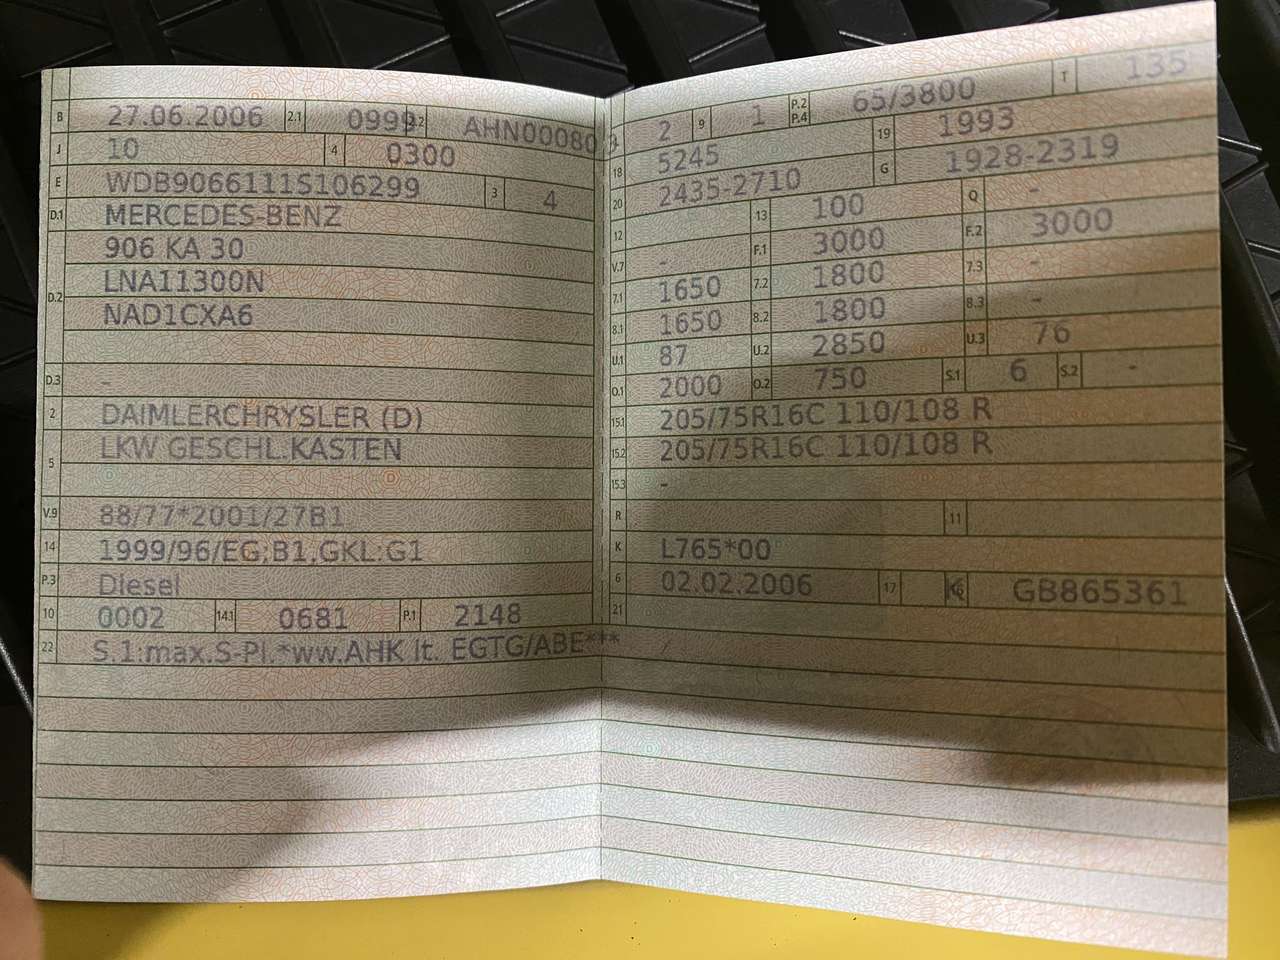 B 27.06.2006 2.1 0999 2.2 AHN00080
J 10 4 0300
E WDB9066111S106299 3 4
D.1 MERCEDES-BENZ
D.2 906 KA 30
LNA11300N
NAD1CXA6
D.3 -
2 DAIMLERCHRYSLER (D)
5 LKW GESCHL.KASTEN
V.9 88/77*2001/27B1
14 1999/96/EG;B1,GKL:G1
P.3 Diesel
10 0002 14.1 0681 P.1 2148
22 S.1:max.S-Pl.*ww.AHK lt. EGTG/ABE***
2 9 1 P.2 P.4 65/3800 T 135
18 5245 19 1993
20 2435-2710 G 1928-2319
12 13 100 Q -
V.7 - F.1 3000 F.2 3000
7.1 1650 7.2 1800 7.3 -
8.1 1650 8.2 1800 8.3 -
U.1 87 U.2 2850 U.3 76
O.1 2000 O.2 750 S.1 6 S.2 -
15.1 205/75R16C 110/108 R
15.2 205/75R16C 110/108 R
15.3 -
R 11
K L765*00
6 02.02.2006 17 K6 GB865361
21